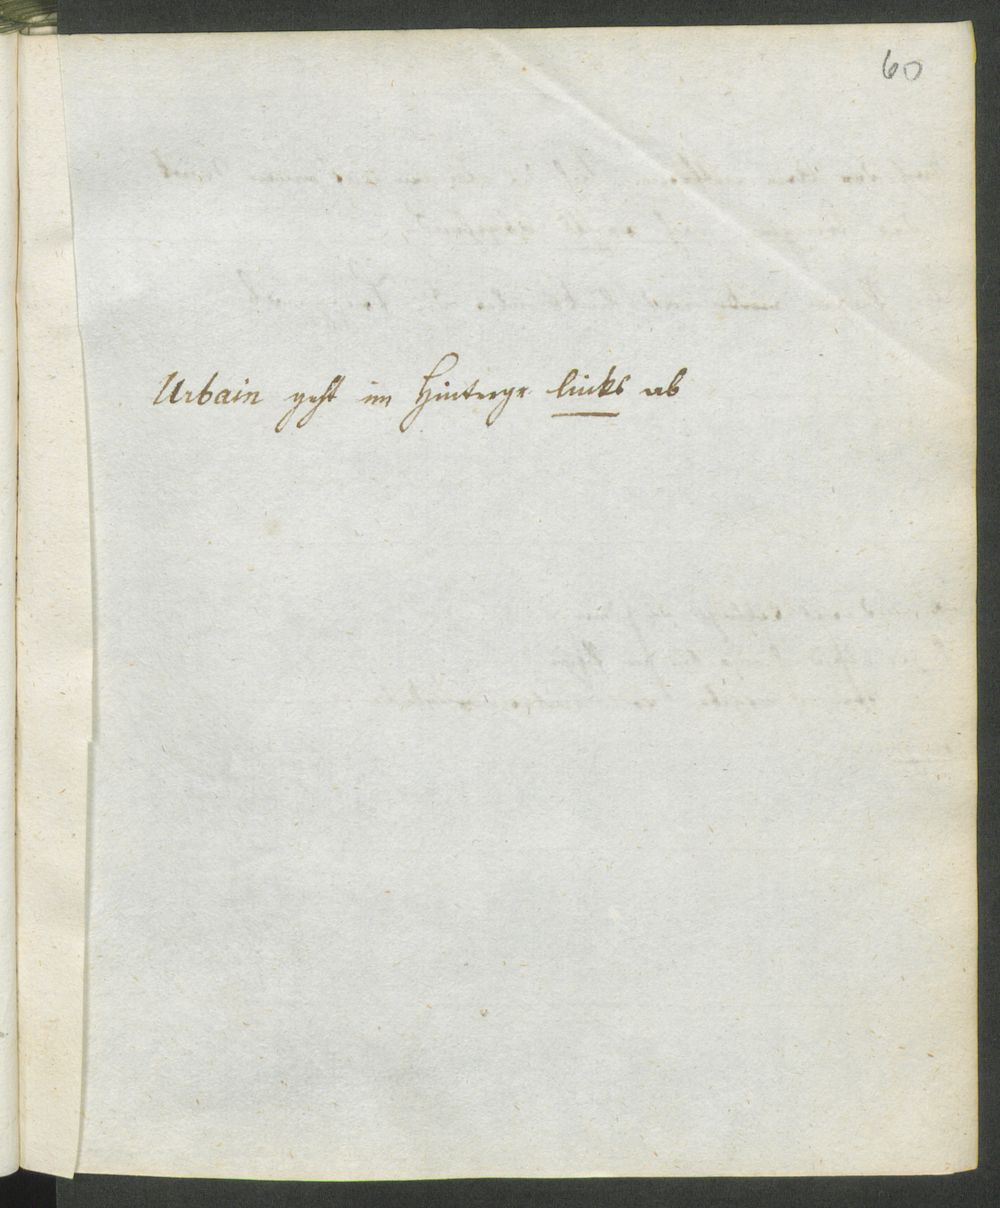 60
Urbain geht im Hintergr. links ab